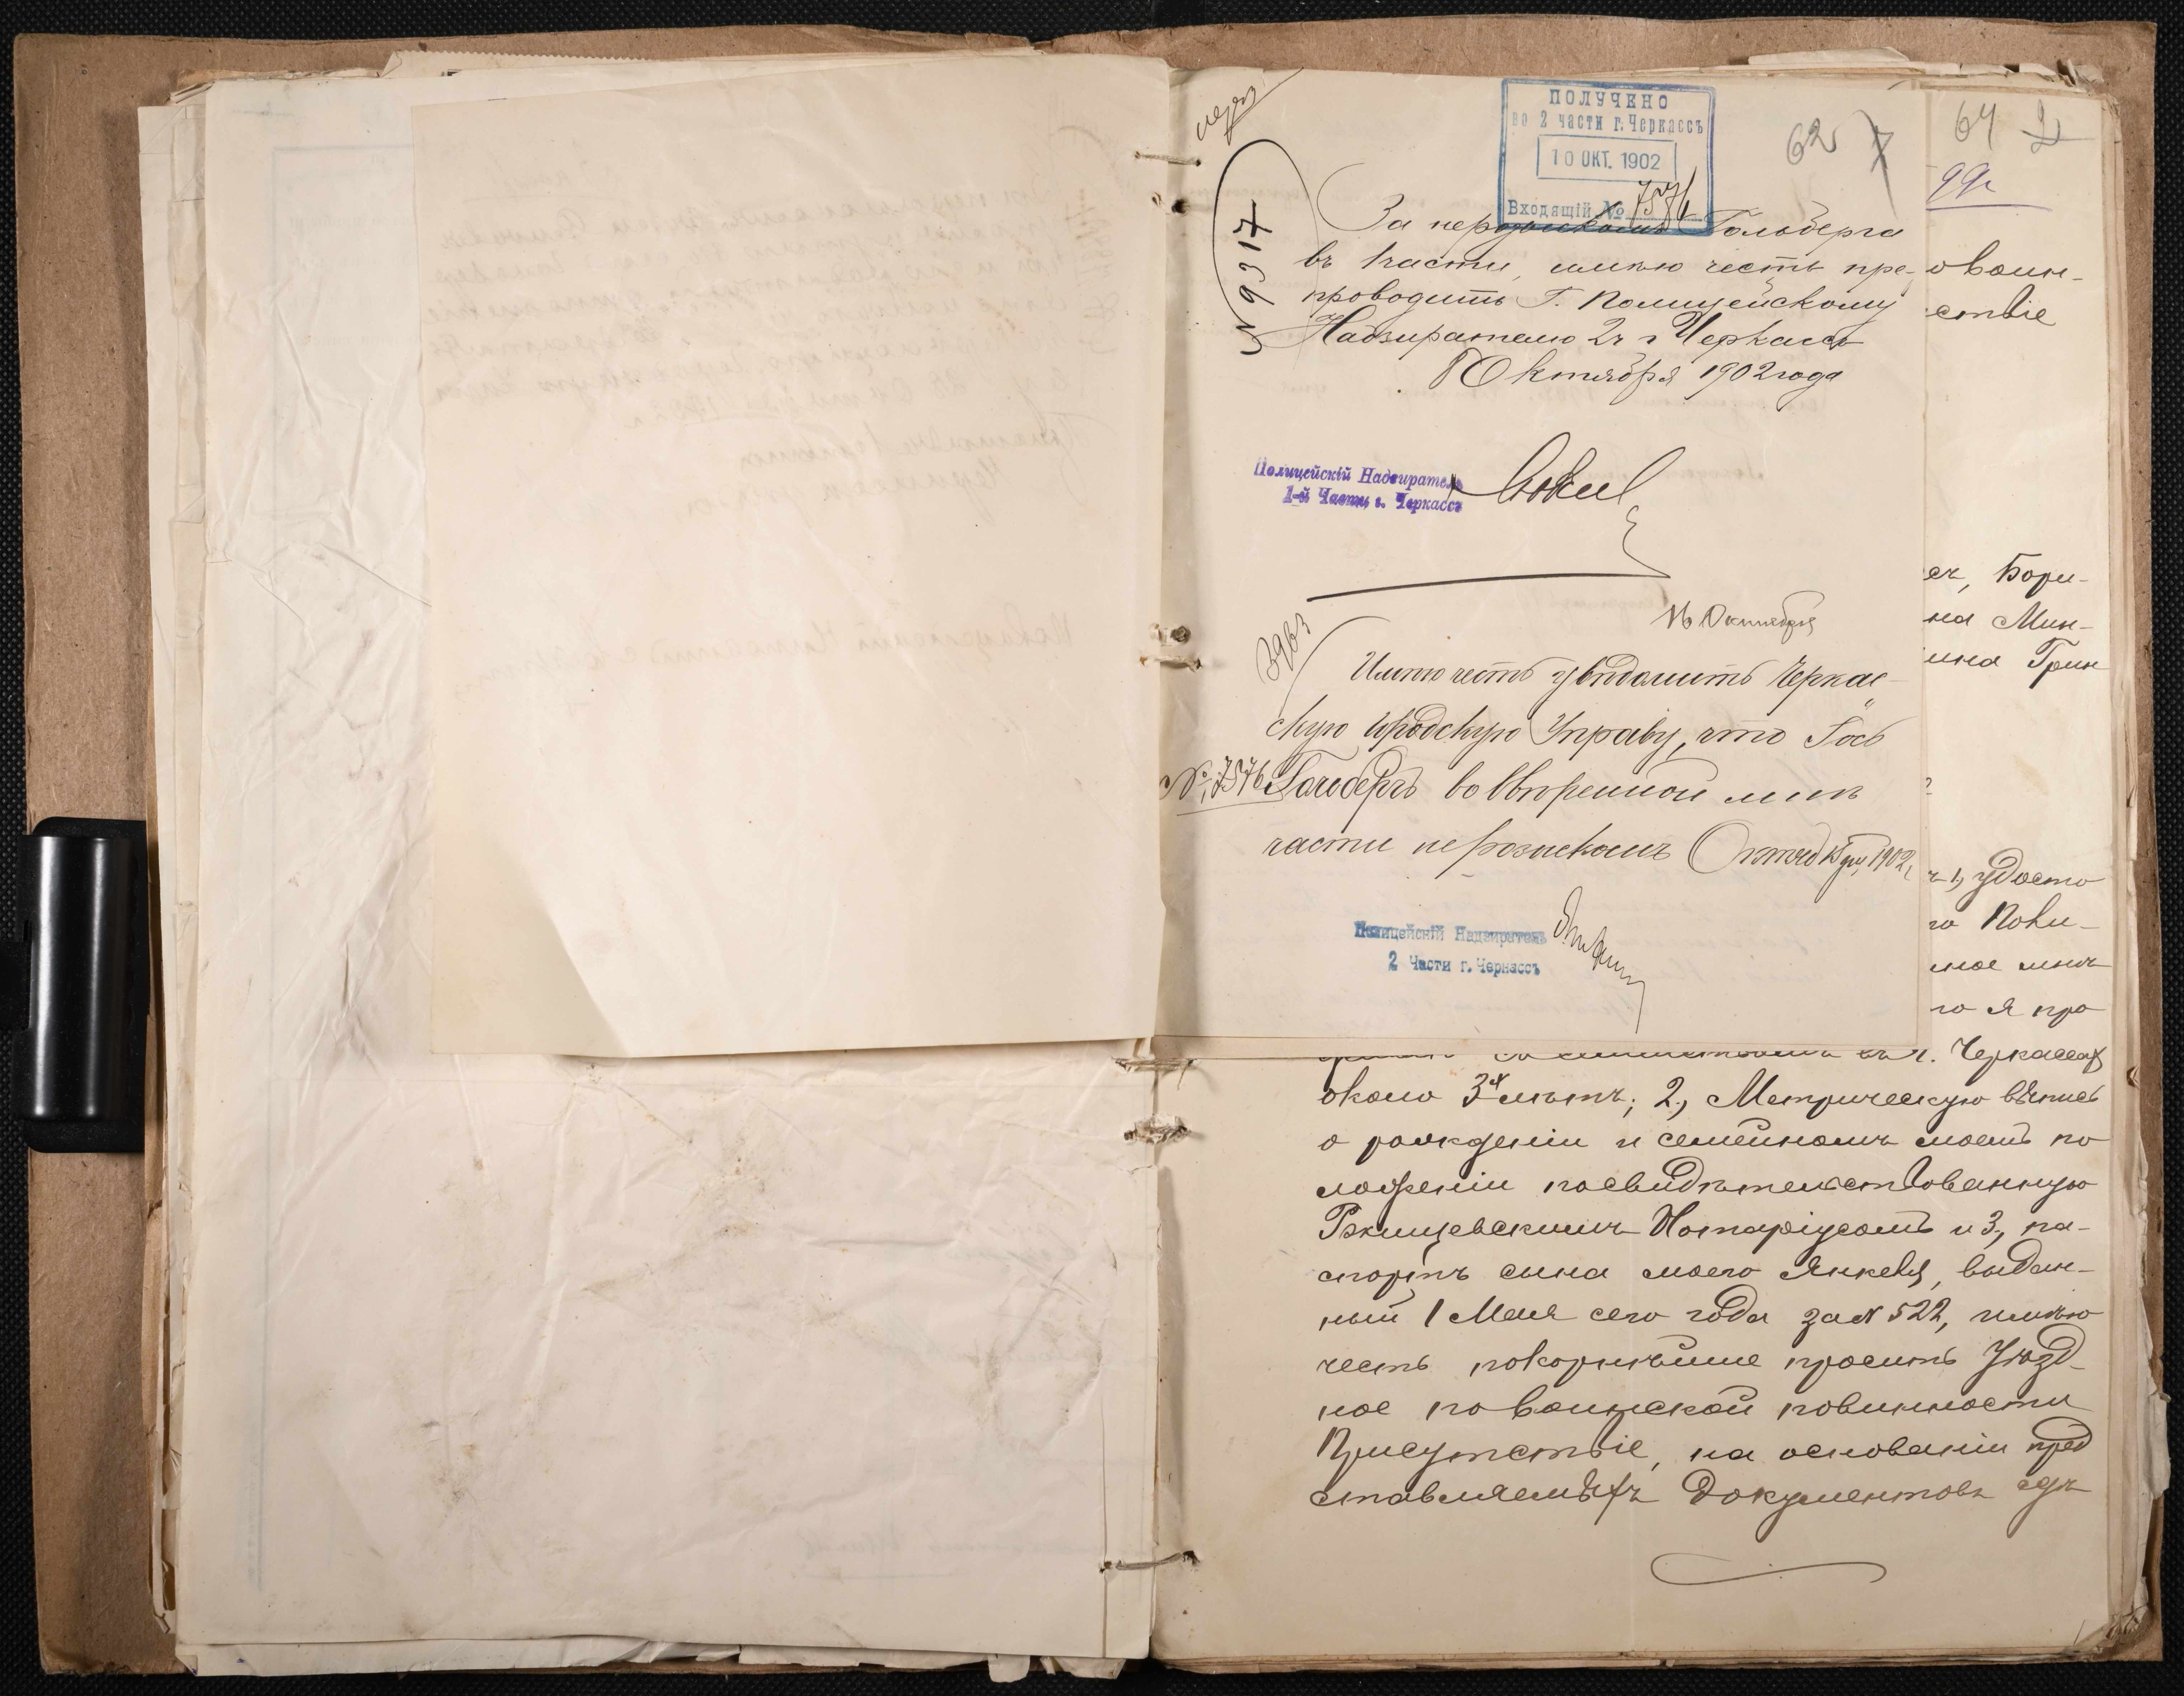 ПОЛУЧЕНО
во 2 части г. Черкассъ
10 ОКТ. 1902
Входящій №
62
64
99
№ 9317
За нерозыскомъ Гольберга
въ 1 части, имѣю честь пре-
проводить Г. Полицейскому
Надзирателю 2 ч г Черкассъ
8 Октября 1902 года
Полицейскій Надзиратель
1-й Части г. Черкассъ
16 Октября
3963
Имѣю честь увѣдомить Черкас-
скую городскую Управу, что Іось
№ 7576 Гольбергъ во ввѣренной мнѣ
части нерозысканъ Октяб 15 дня 1902 г.
Полицейскій Надзиратель
2 Части г. Черкассъ
овоин-
ствіе
ег, Бори-
на Мин-
ина Грин
1, удосто
го Пови-
ное мнѣ
го я про
въ г. Черкассах
около 3х лѣтъ; 2, Метрическую выпись
о рожденіи и семейномъ моемъ по
ложеніи посвидѣтельствованную
Ржищевскимъ Нотаріусомъ и 3, па-
спортъ сына моего Янкеля, выдан-
ный 1 Мая сего года за № 522, имѣю
честь покорнѣйше просить Уѣзд-
ное по воинской повинности
Присутствіе, на основаніи пред
ставляемыхъ документовъ сдѣ